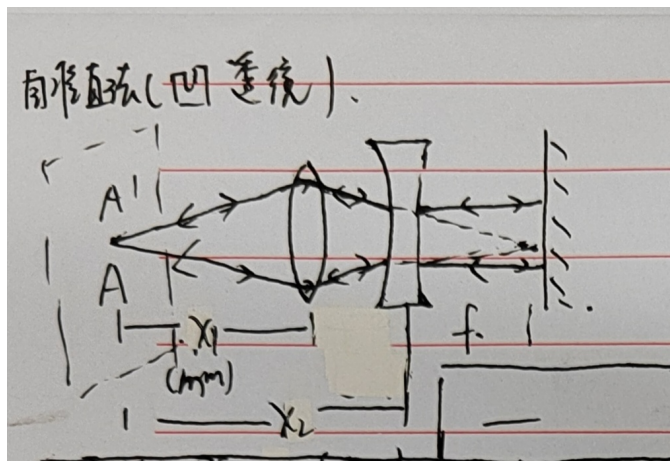 自准直法(凹透镜).
A'
A
X₁
f
(mm)
X₂